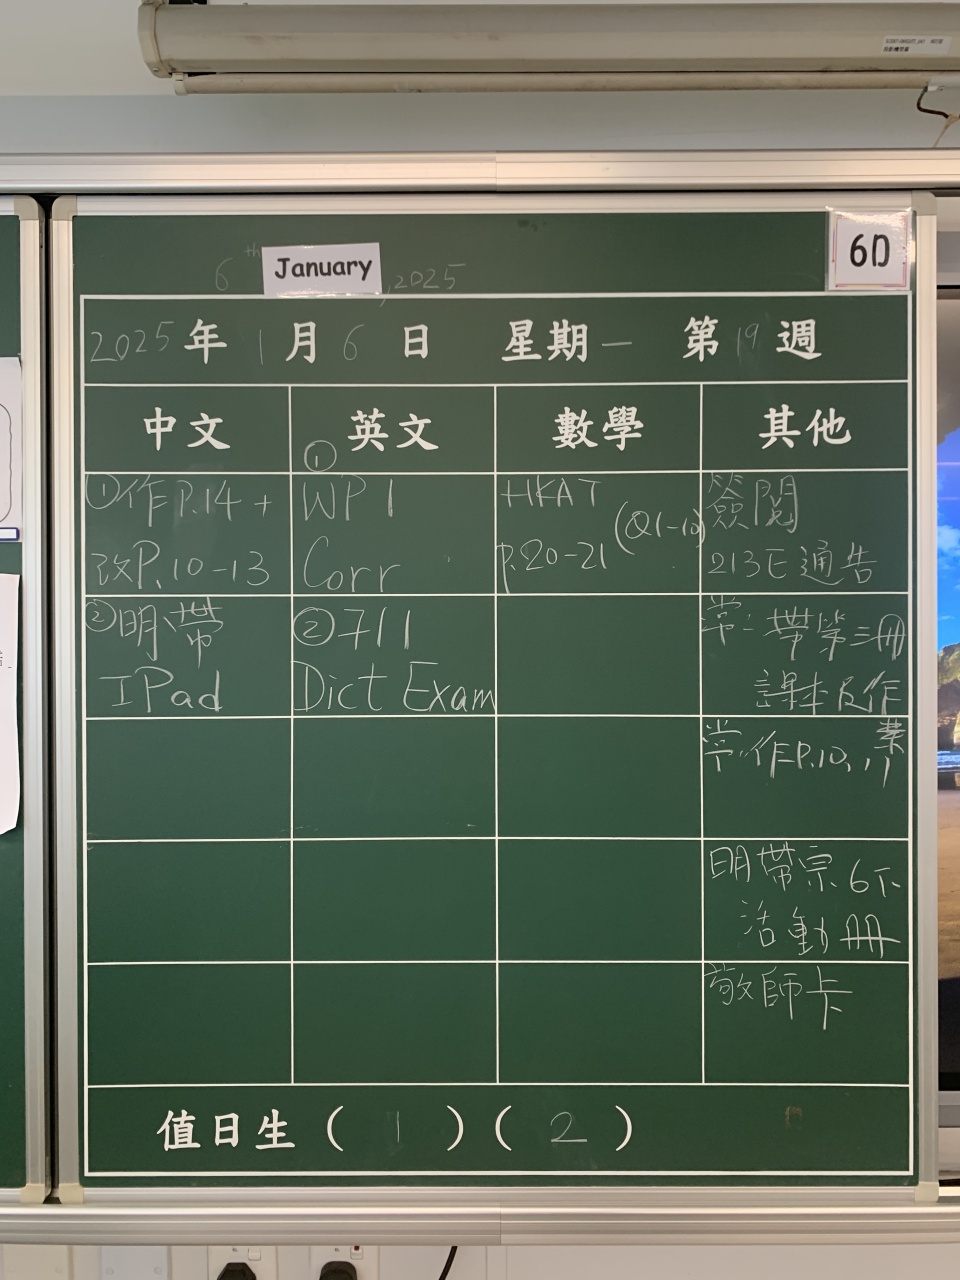 6th January, 2025
6D
2025年1月6日 星期一 第19週
中文 英文 數學 其他
①作P.14+
改P.10-13
②明帶
IPad
①
WP1
Corr
②7/1
Dict Exam
HKAT
P.20-21 (Q1-10)
簽閱
213E通告
常:帶第三冊
課本及作
業
常:作P.10, 11
明帶宗6下
活動冊
敬師卡
值日生(1)(2)